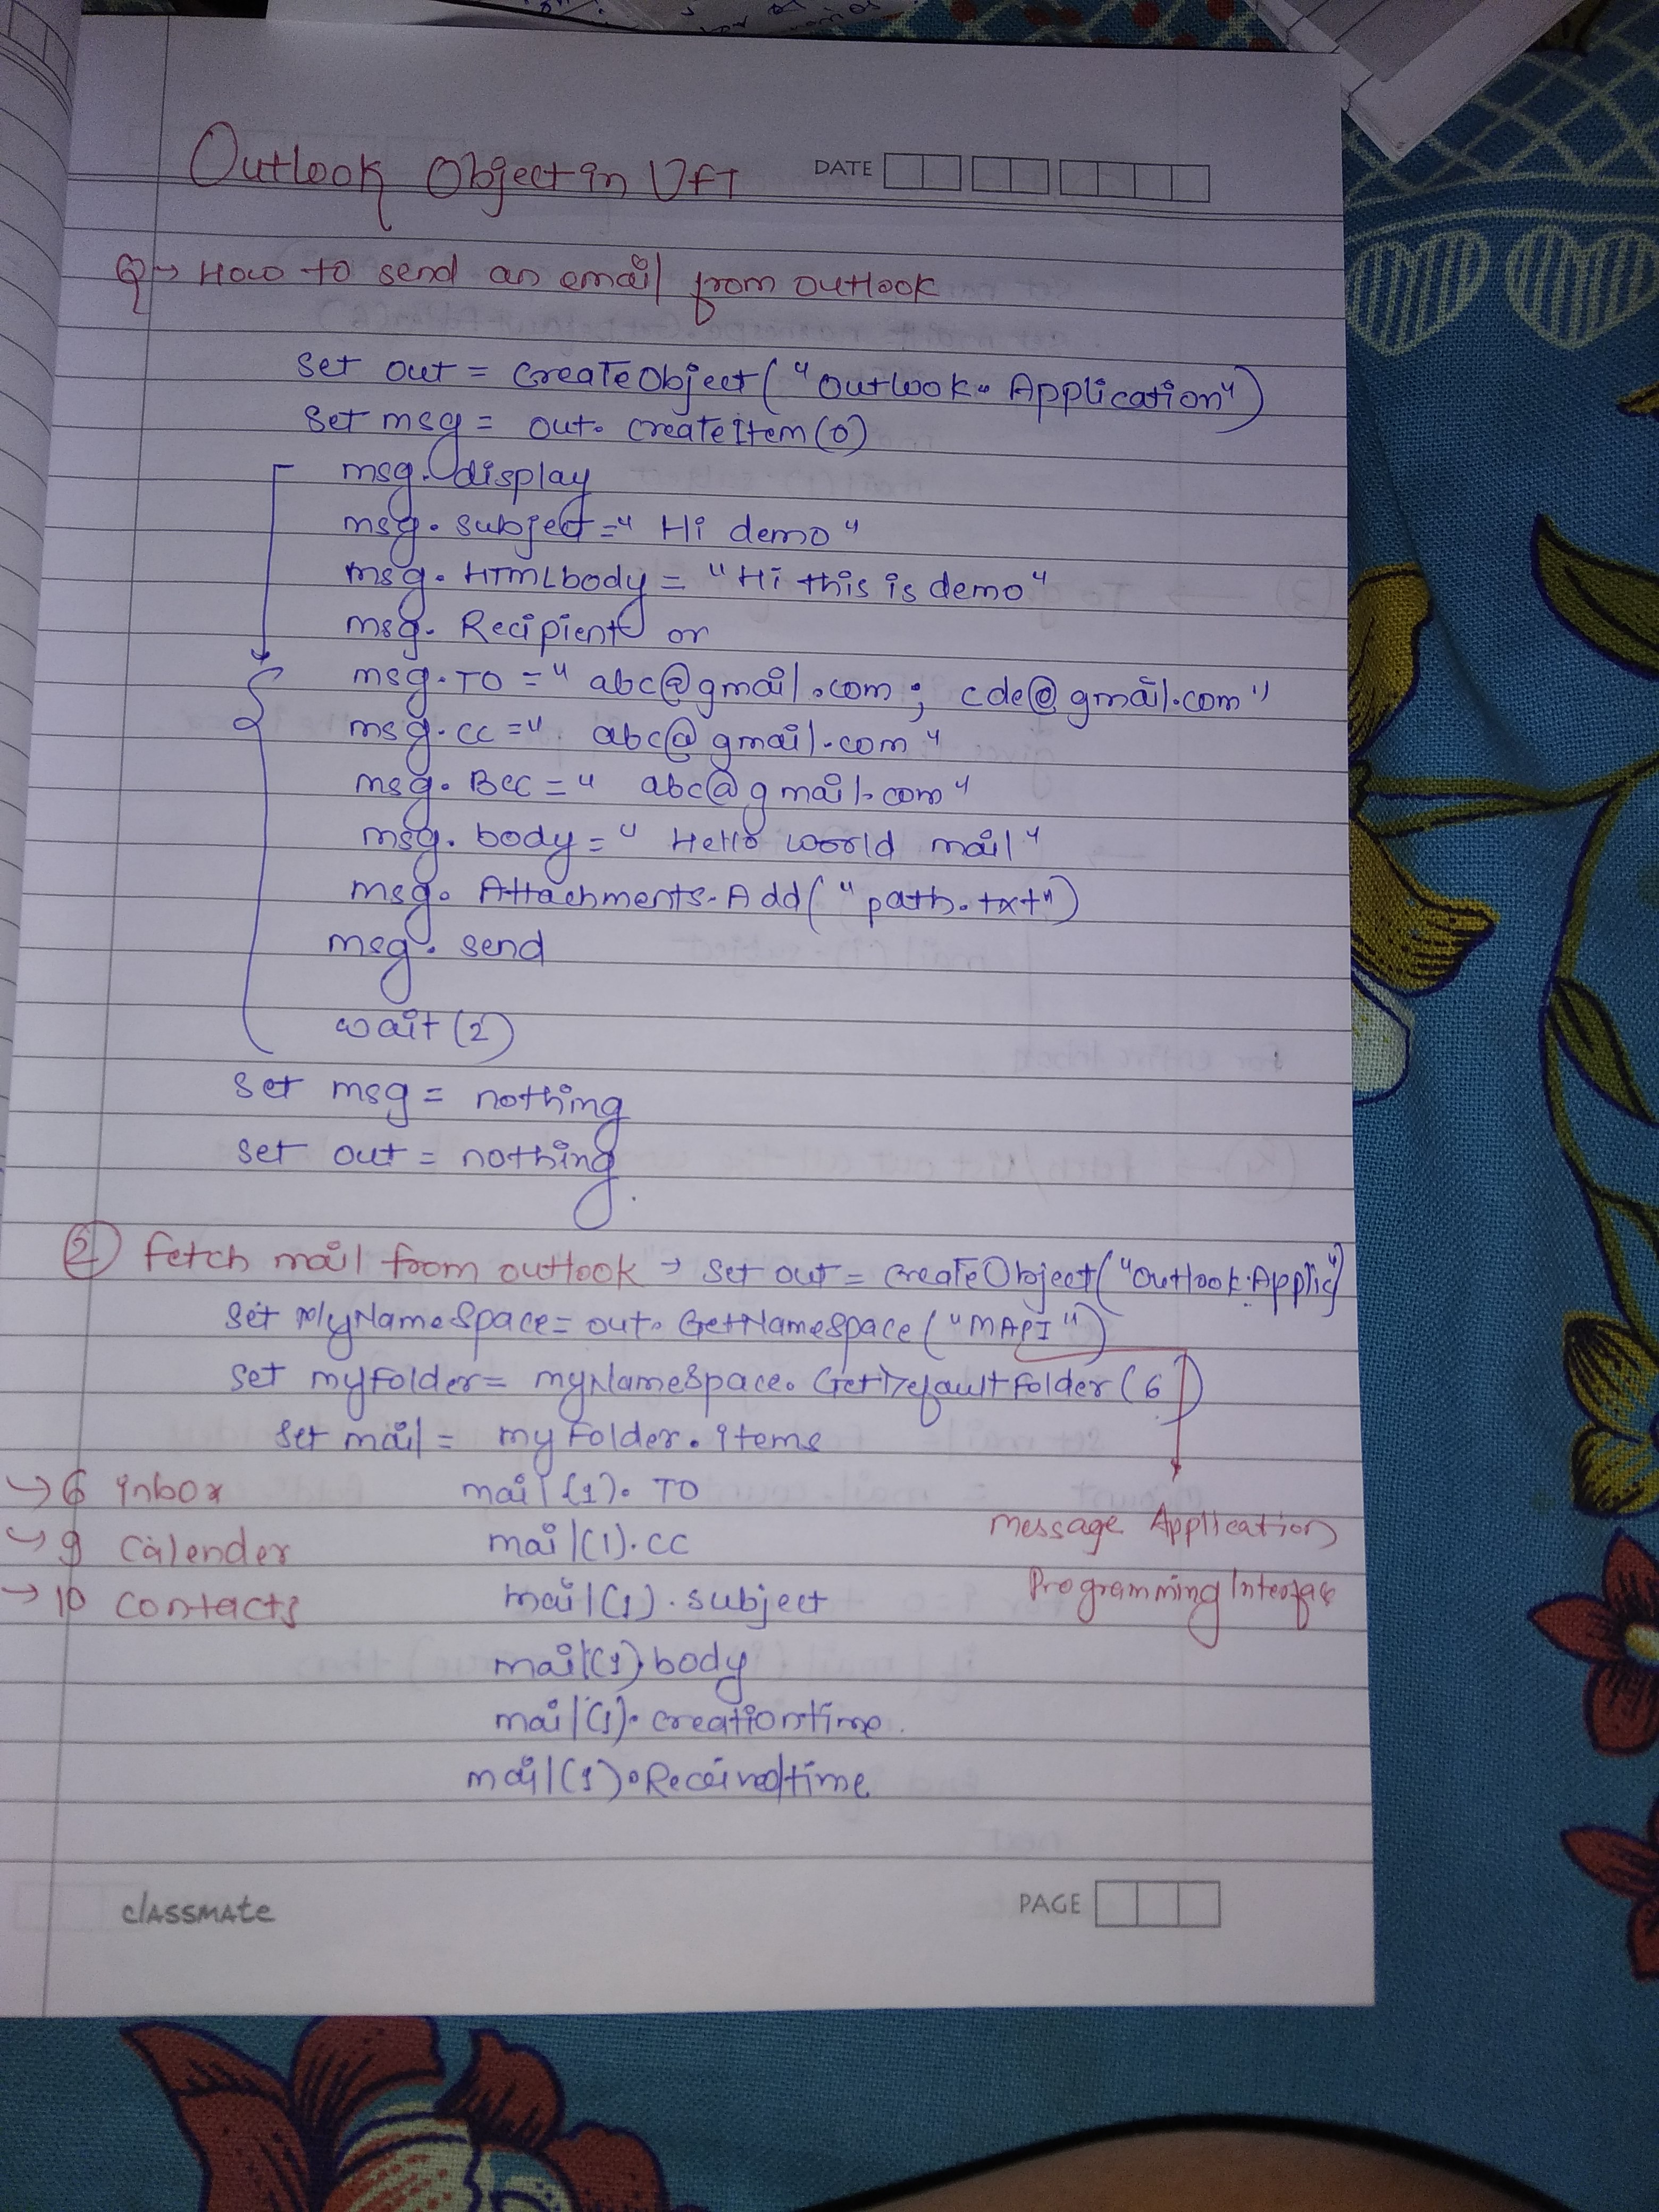 Outlook Object in UFT
DATE
Q→ How to send an email from outlook
Set out = CreateObject("Outlook.Application")
Set msg = out.createItem(0)
msg.display
msg.subject=" Hi demo"
msg.HTMLbody = "Hi this is demo"
msg.Recipient or
msg.TO =" abc@gmail.com; cde@gmail.com"
msg.cc =" abc@gmail.com"
msg.Bcc =" abc@gmail.com"
msg.body=" Hello world mail"
msg.Attachments.Add("path.txt")
msg.send
wait(2)
Set msg = nothing
set out = nothing.
2 Fetch mail from outlook → Set out = createObject("Outlook.Applic")
Set MyNameSpace= out.GetNameSpace("MAPI")
Set myfolder= myNameSpace.GetDefaultFolder(6)
Set mail = myFolder.items
→ 6 inbox mail(1).TO
→ 9 Calender mail(1).CC
Message Application
→ 10 Contacts mail(1).subject
Programming Interface
mail(1).body
mail(1).creationtime.
mail(1).Receivedtime
classmate
PAGE